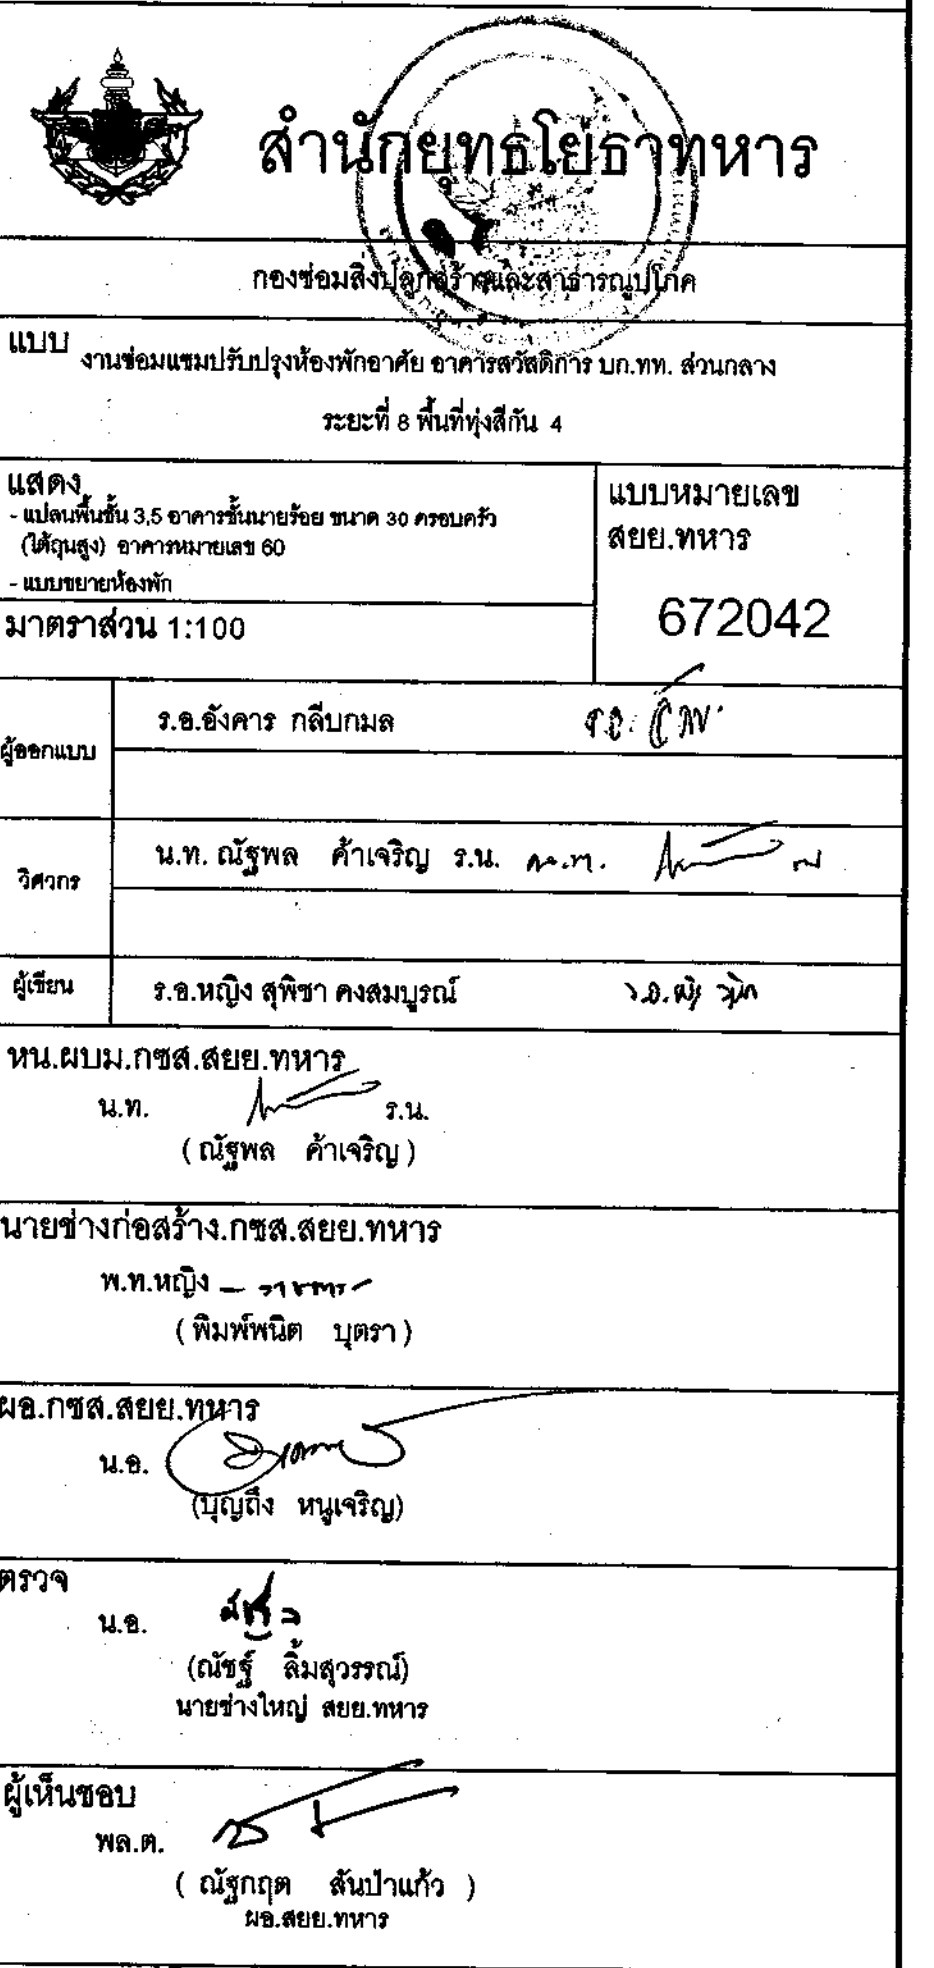 สำนักยุทธโยธาทหาร
กองซ่อมสิ่งปลูกสร้างและสาธารณูปโภค
แบบ
งานซ่อมแซมปรับปรุงห้องพักอาศัย อาคารสวัสดิการ บก.ทท. ส่วนกลาง
ระยะที่ 8 พื้นที่ทุ่งสีกัน 4
แสดง
- แปลนพื้นชั้น 3,5 อาคารชั้นนายร้อย ขนาด 30 ครอบครัว
(ใต้ถุนสูง) อาคารหมายเลข 60
- แบบขยายห้องพัก
แบบหมายเลข
สยย.ทหาร
672042
มาตราส่วน 1:100
ผู้ออกแบบ
ร.อ.อังคาร กลีบกมล ร.อ.
วิศวกร
น.ท. ณัฐพล ค้าเจริญ ร.น. น.ท.
ผู้เขียน
ร.อ.หญิง สุพิชา คงสมบูรณ์ ร.อ.หญิง
หน.ผบม.กซส.สยย.ทหาร
น.ท. ร.น.
( ณัฐพล ค้าเจริญ )
นายช่างก่อสร้าง.กซส.สยย.ทหาร
พ.ท.หญิง
( พิมพ์พนิต บุตรา )
ผอ.กซส.สยย.ทหาร
น.อ.
(บุญถึง หนูเจริญ)
ตรวจ
น.อ.
(ณัชฐ์ ลิ้มสุวรรณ์)
นายช่างใหญ่ สยย.ทหาร
ผู้เห็นชอบ
พล.ต.
( ณัฐกฤต สันป่าแก้ว )
ผอ.สยย.ทหาร